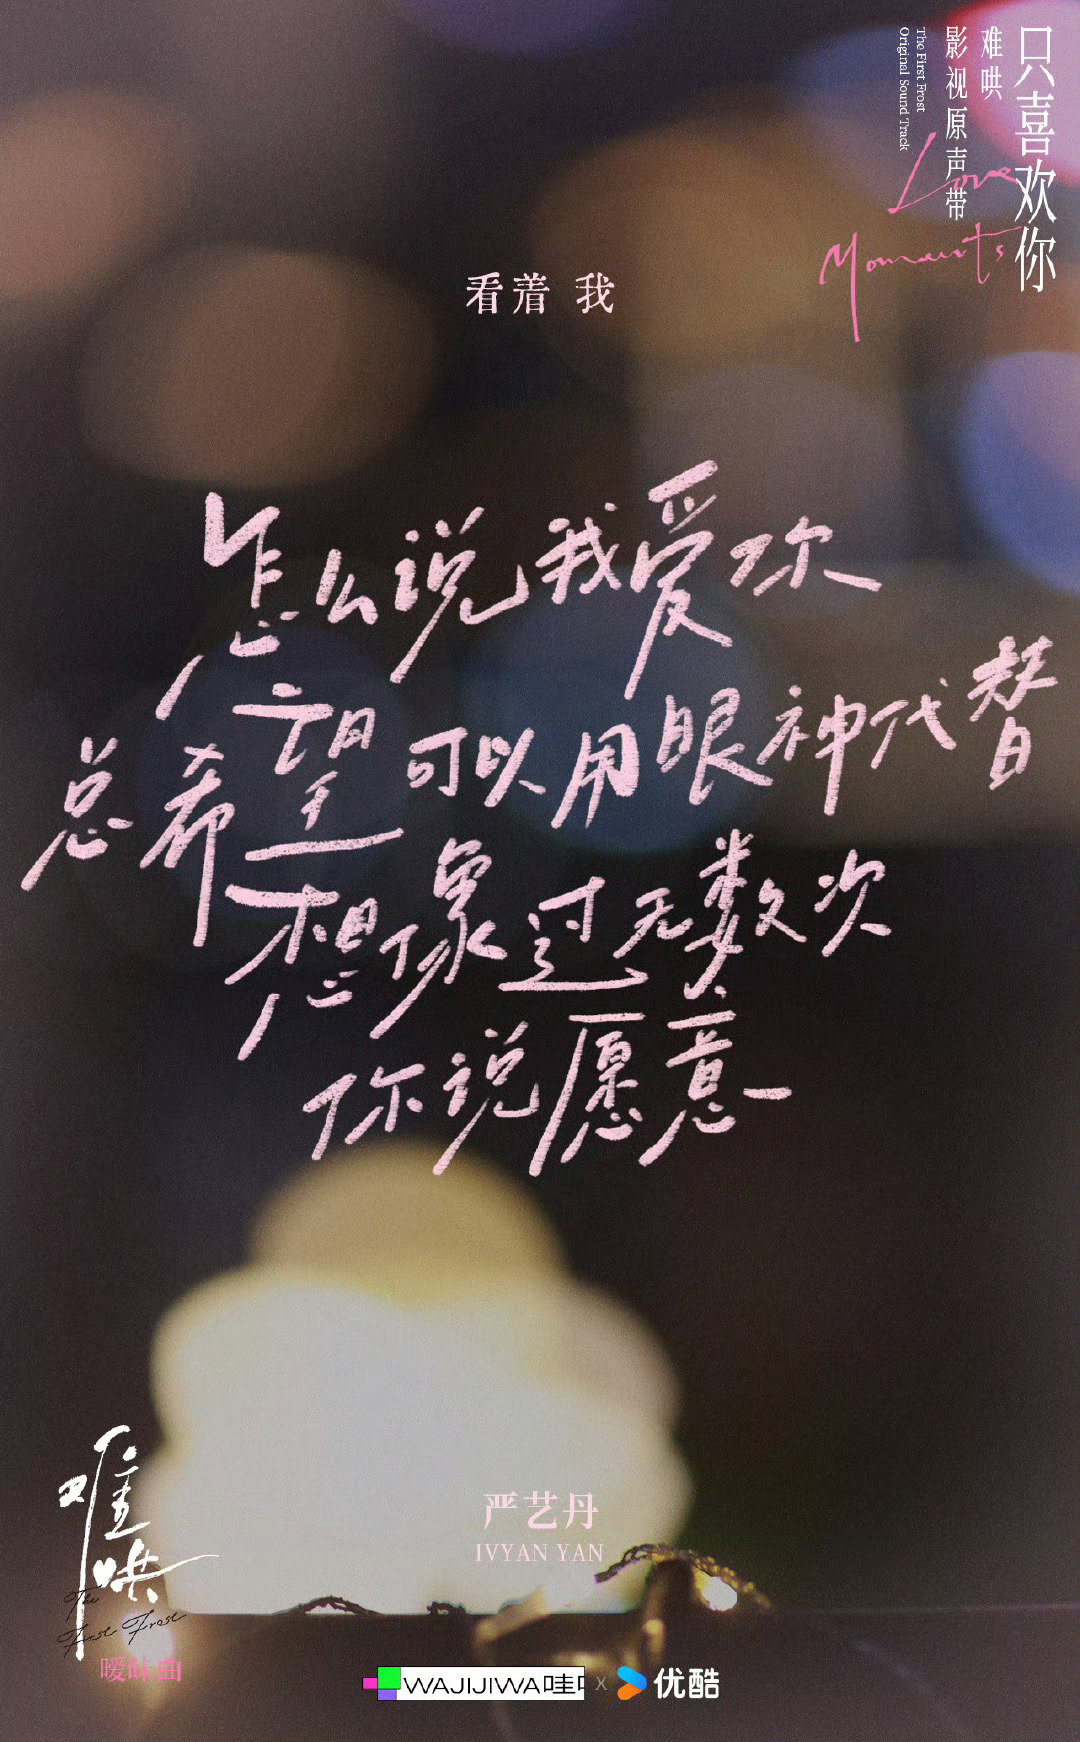 只喜欢你
难哄
影视原声带
The First Frost
Original Sound Track
Love
Moments
看着 我
怎么说我爱
总希望可以用眼神代替
想像过无数次
你说愿意
严艺丹
IVYAN YAN
难哄
The
First Frost
暧昧曲
WAJIJIWA哇
X
优酷